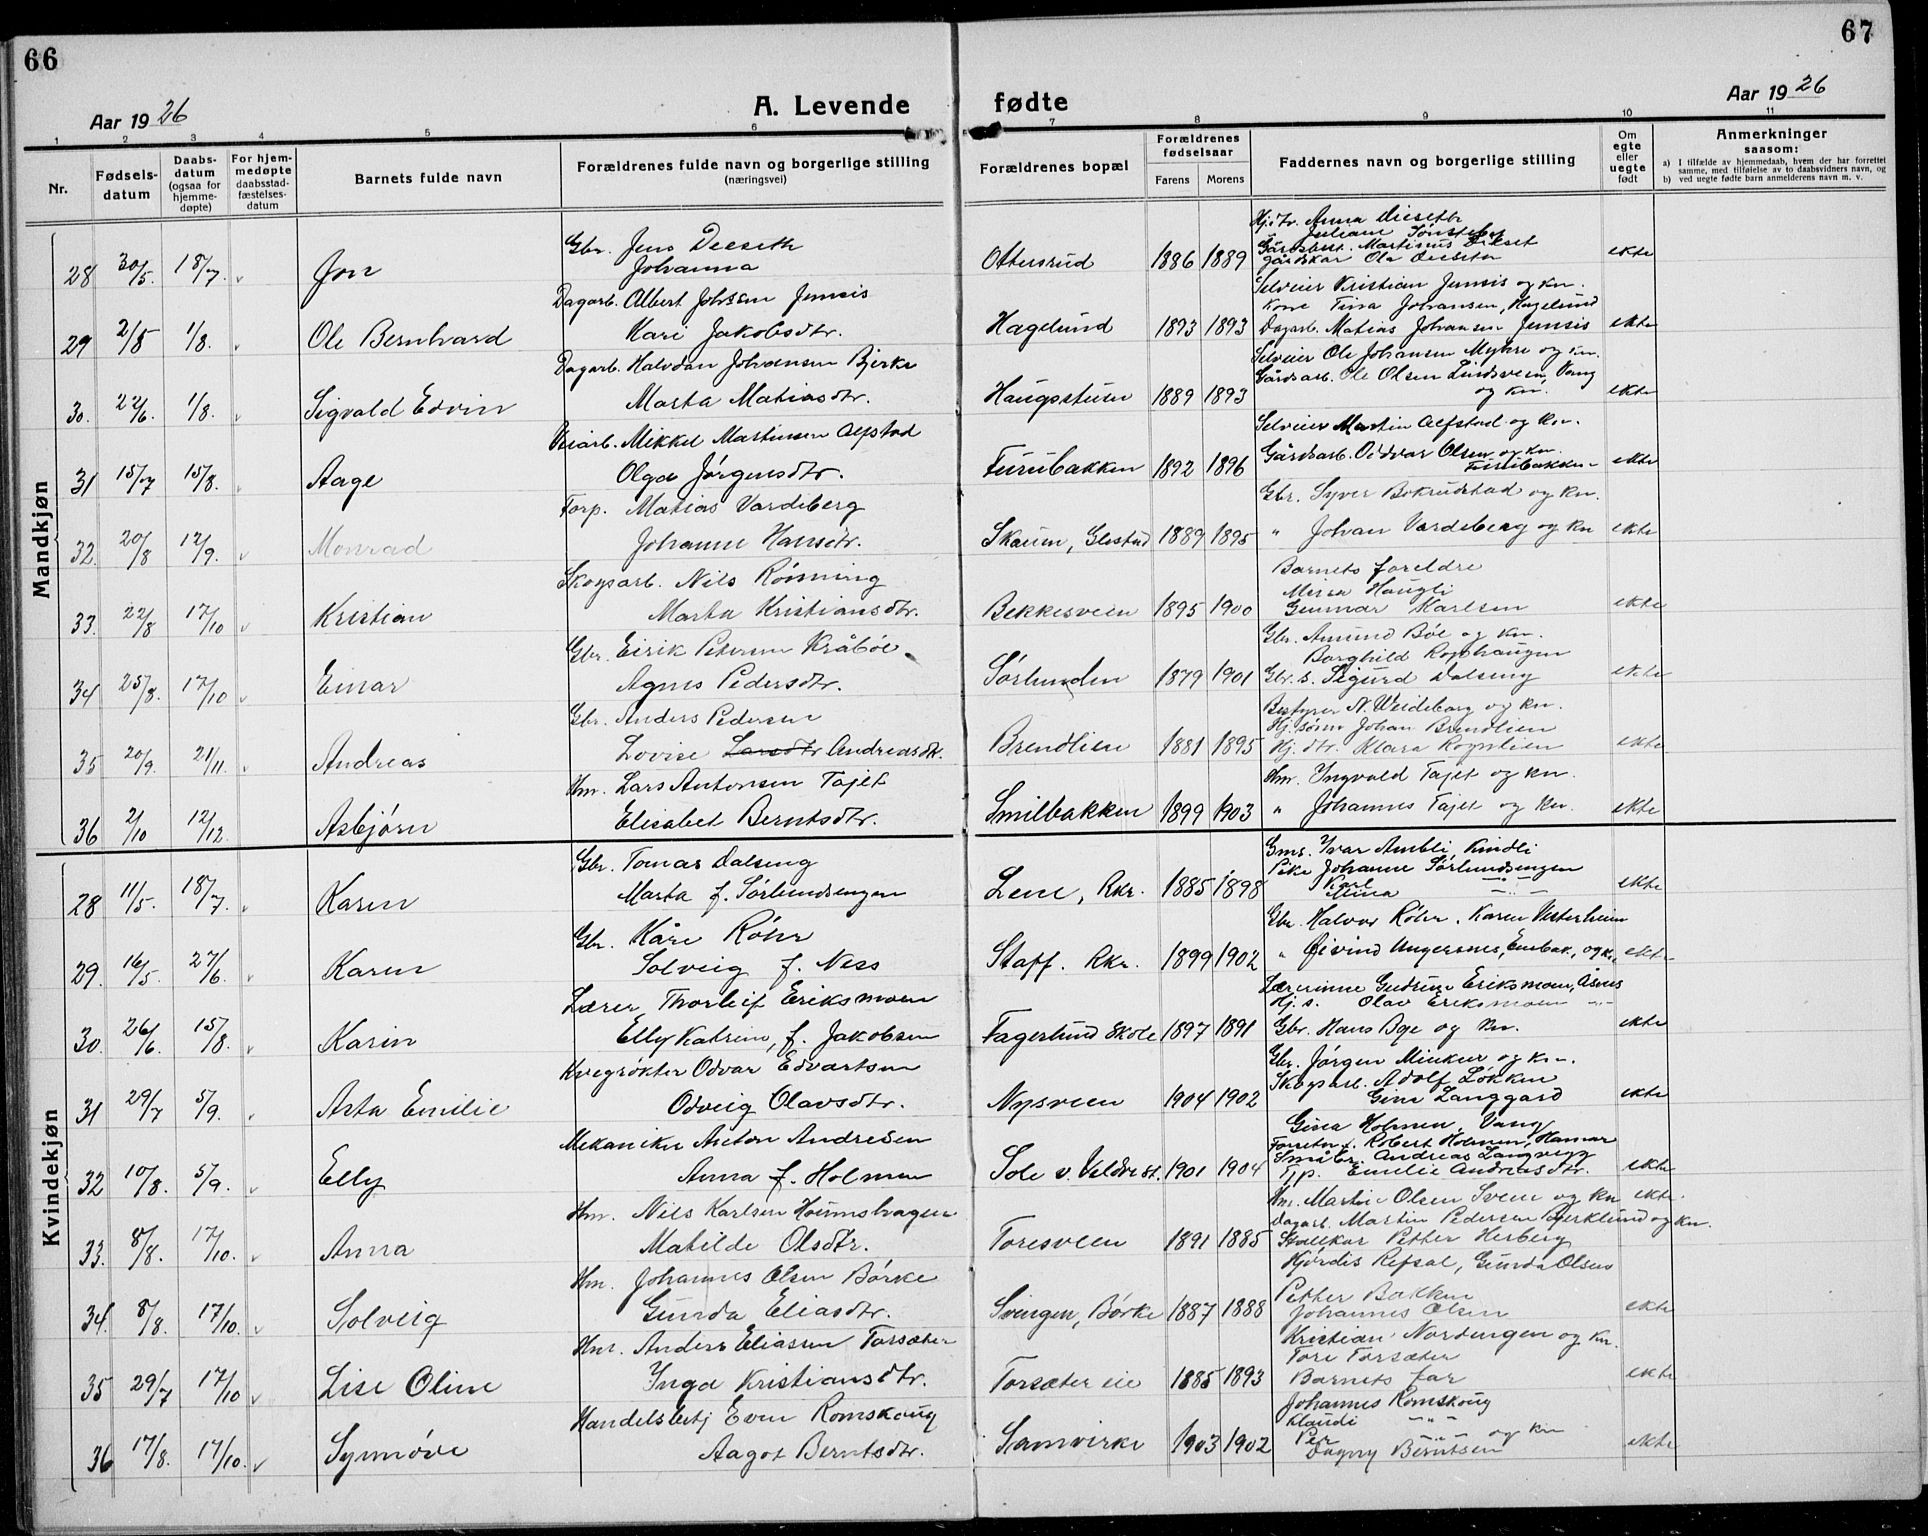 66
67
Aar 1926
A. Levende fødte
Aar 1926
1 2 3 4 5 6 7 8 9 10 11
Nr.
Fødsels-datum
Daabs-datum (ogsaa for hjemme-døpte)
For hjem-medøpte daabsstad-fæstelses-datum
Barnets fulde navn
Forældrenes fulde navn og borgerlige stilling (næringsvei)
Forældrenes bopæl
Forældrenes fødselsaar
Farens Morens
Faddernes navn og borgerlige stilling
Om egte eller uegte født
Anmerkninger saasom:
a) I tilfælde av hjemmedaab, hvem der har forrettet samme, med tilføielse av to daabsvidners navn, og
b) ved uegte fødte barn anmelderens navn m. v.
Mandkjøn
Hj.dtr. Anna Dieseth
Juliane Sønsteby
Gbr. Jens Deeseth Gårdsbest. Martinus Dieset
28 30/5. 18/7. v Jon Johanna Ottersrud 1886 1889 gårdskar Ola Dieseth ekte
Dagarb. Albert Johsen Jemsis Selveier Kristian Jemsis og kn.
Kone Tina Johansen, Hagelund
29 2/5 1/8. v Ole Bernhard Kari Jakobsdtr. Hagelund 1893 1893 Dagarb. Matias Johansen Jemsis ekte
Dagarb. Halvdan Johansen Bjerke Selveier Ole Johansen Myhre og kn.
30. 22/6. 1/8. v Sigvald Edvin Marta Matiasdtr. Haugstuen 1889 1893 Gårdsarb. Ole Olsen Lindsveen, Vang og kn. ekte
Veiarb. Mikkel Martinsen Alfstad Selveier Martin Alfstad og kn.
31 15/7 15/8. v Aage Olga Jørgensdtr. Furubakken 1892 1896 Gårdsarb. Oddvar Olsen og kn. Furubakken ekte
Forp. Matias Vardeberg Gbr. Syver Bokrudstad og kn.
32. 20/8 12/9. v Monrad Johanne Hansdtr. Skauen, Glestad 1889 1895 " Johan Vardeberg og kn ekte
Skogsarb. Nils Rönning Barnets foreldre
Mina Haugli
33. 22/8 17/10 v Kristian Marta Kristiansdtr. Bekkesveen 1895 1900 Gunnar Karlsen ekte
Gbr. Eirik Petersen Kråbøl Gbr. Amund Böe og kn.
Borghild Rognhaugen
34 25/8. 17/10 v Einar Agnes Pedersdtr. Sørlunden 1879 1901 Gbr. s. Sigurd Dalseng ekte
Gbr. Anders Pedersen Bestyrer N. Weideborg og kn.
Hj. sønn Johan Brendlien
35 20/9. 21/11. Andreas Lovise Larsdtr Andreasdtr. Brendlien 1881 1895 Hj. dtr. Klara Rognlien ekte
Hm. Lars Antonsen Tajet Hm. Yngvald Tajet og kn.
36 2/10 12/12. Asbjørn Elisabet Berntsdtr. Smilbakken 1899 1903 " Johannes Tajet og kn. ekte
Kvindekjøn
Gbr. Tomas Dalseng Gms. Ivar Ambli Kindli
Pike Johanne Sørlundsengen
28 11/5. 18/7. v Karen Marta f. Sørlundsengen Lene, Rkr. 1885 1898 Karl Mina -"- ekte
Gbr. Kåre Röhr Gbr. Halvor Röhr. Karen Vesterheim
29. 16/5. 27/6. v Karen Solveig f. Ness Staff. Rkr. 1899 1902 " Øivind Ungersnes, Embak., og kn. ekte
Lærer Thorleif Eriksmoen Lærerinne Gudrun Eriksmoen, Åsnes
Hj. s. Olav Eriksmoen -"-
30. 26/6. 15/8. v Karin Elly Katrine, f. Jakobsen Fagerlund skole 1897 1891 Gbr. Hans Bye og kn. ekte
Kvegrøkter Odvar Edvartsen Gbr. Jørgen Minkur og kn.
Skogsarb. Adolf Løkken
31 29/7 5/9. v Asta Emilie Odveig Olavsdtr. Nysveen 1904 1902 Gina Langgård ekte
Mekaniker Anton Andresen Gina Holmen, Vang
Forretn.f. Robert Holmen, Hamar
Småbr. Andreas Langvegg
32 10/8. 5/9. v Elly Anna f. Holmen Sole v. Veldre st. 1901 1904 Tjp. Emilie Andreasdtr. ekte
Hm. Nils Karlsen Holmshagen Hm. Martin Olsen Sveen og kn ekte.
Dagarb. Martin Pedersen Bjerklund og kn.
33. 8/8. 17/10. v Anna Matilde Olsdtr. Toresveen 1891 1885 Stallkar Petter Herberg
Hm. Johannes Olsen Børke Hjördis Refsal, Gunda Olsen
Petter Bakken
34. 8/8. 17/10. v Solveig Gunda Eliasdtr. Svingen, Børke 1887 1888 Johannes Olsen ekte
Hm. Anders Eliassen Torsæter Kristian Nordengen og kn.
Tore Torsæter
35 29/7 17/10 v Lise Oline Inga Kristiansdtr. Torsæter eie 1885 1893 Barnets far ekte
Handelsbetj Even Romskoug Johannes Romskoug
Klaudi -"-
Per -"- og kn
36 17/8. 17/10. v Synnøve Aagot Berntsdtr. Samvirke 1903 1902 Dagny Berntsen ekte